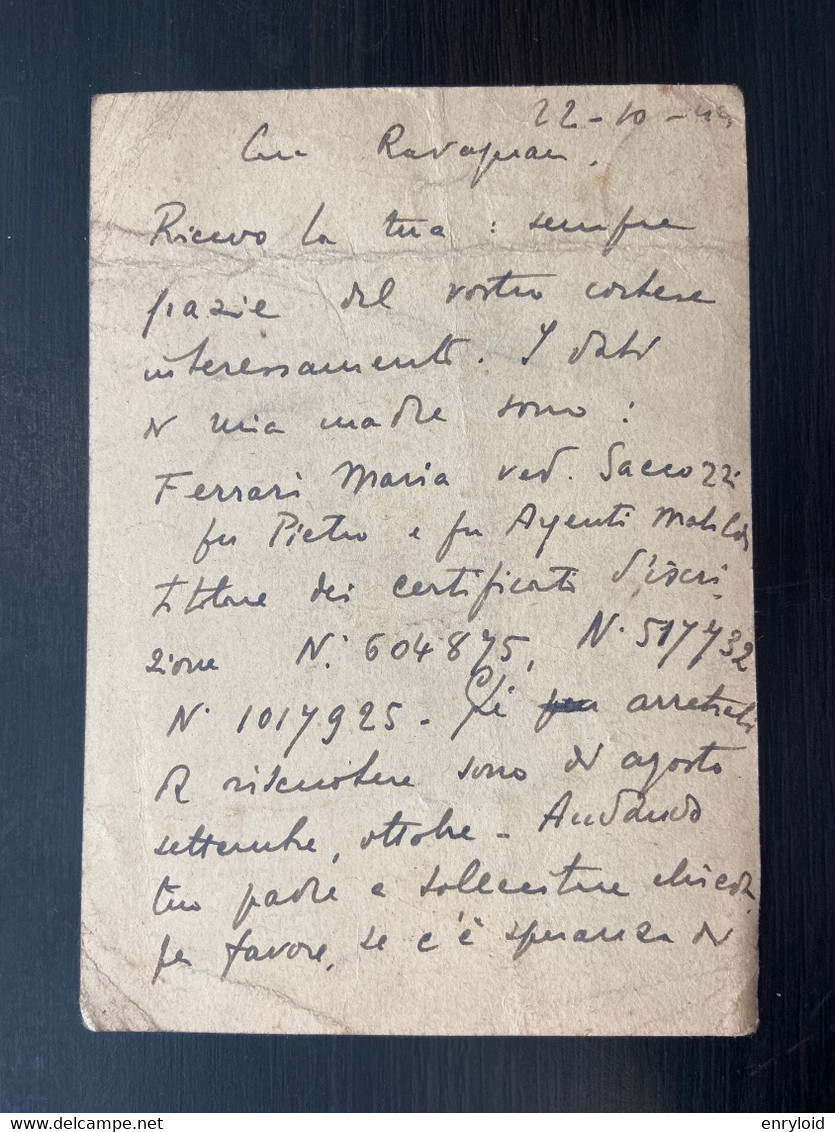 22-10-44
Caro Ravagnan,
Ricevo la tua: sempre
grazie del vostro cortese
interessamento. I dati
di mia madre sono:
Ferrari Maria ved. Saccozzi
fu Pietro e fu Agenti Matilde
titolare dei certificati d'iscri-
zione N. 604875, N. 517732
N. 1017925 - Gli arretrati
da riscuotere sono di agosto
settembre, ottobre - Andando
tuo padre a sollecitare chieda,
per favore, se c'è speranza di
delcampe.net
enryloid